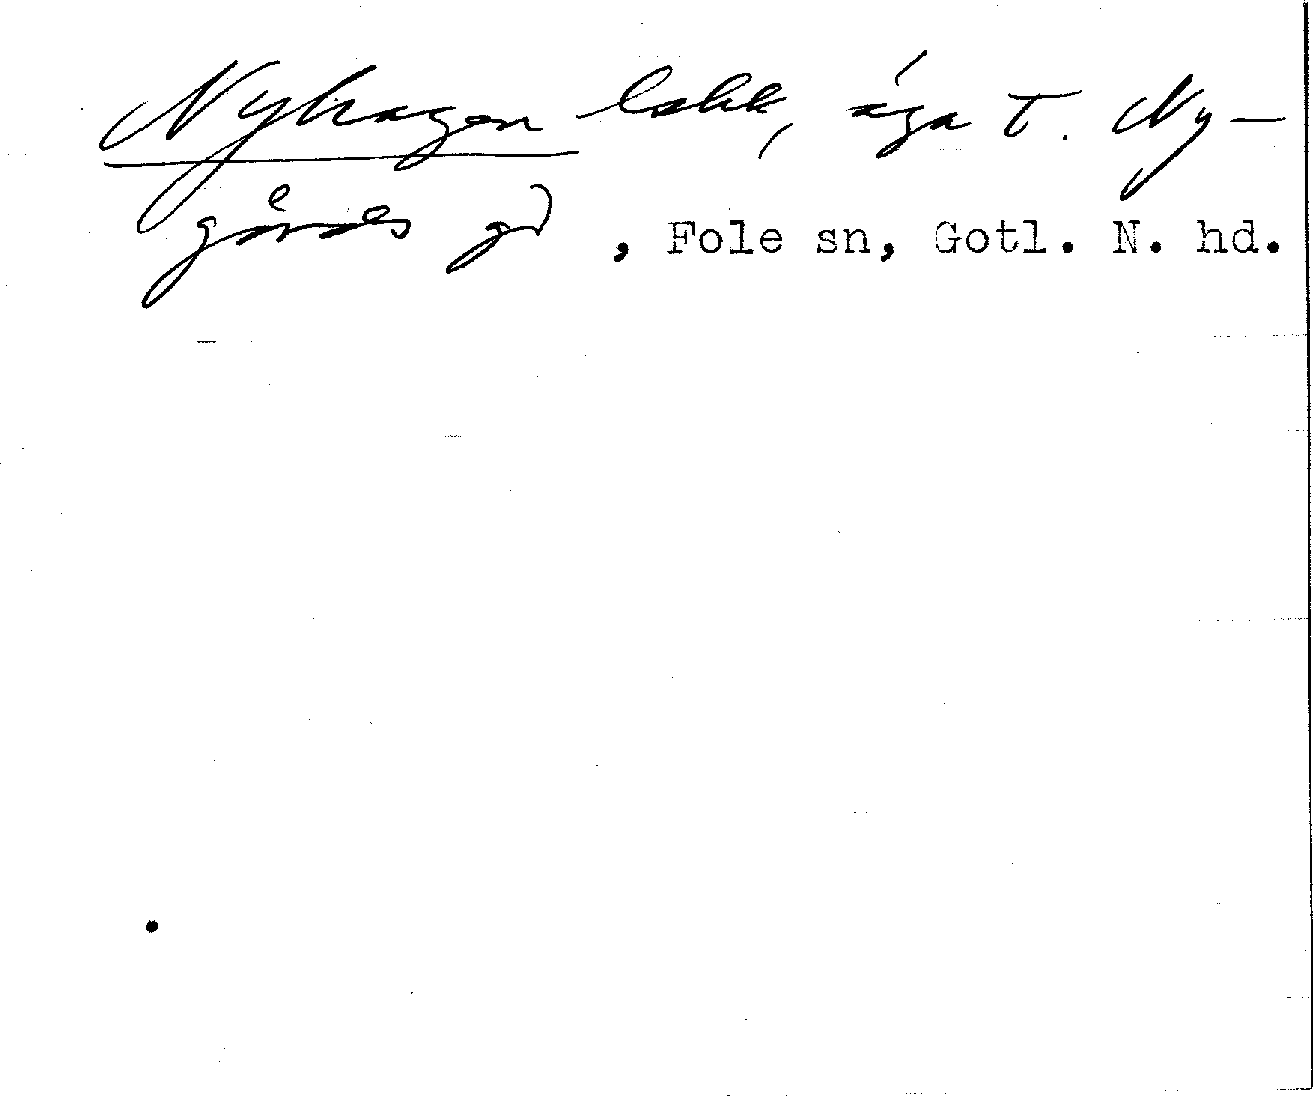 Nyhagen lokk, äga t. Ny-
gårds gd, Fole sn, Gotl. N. hd.